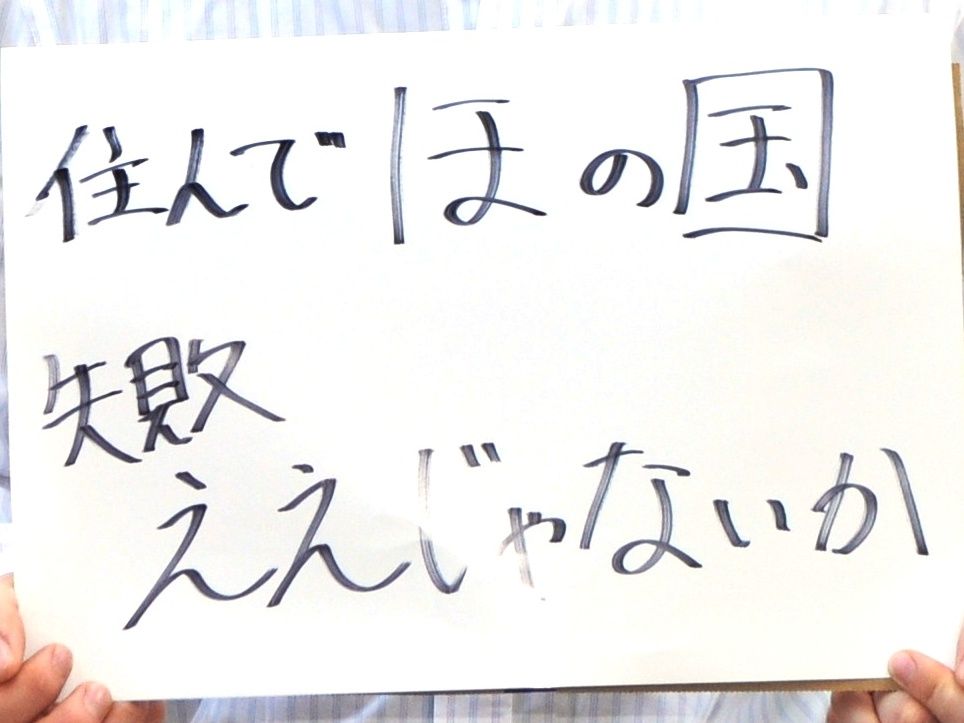 住んでほの国
失敗
ええじゃないか